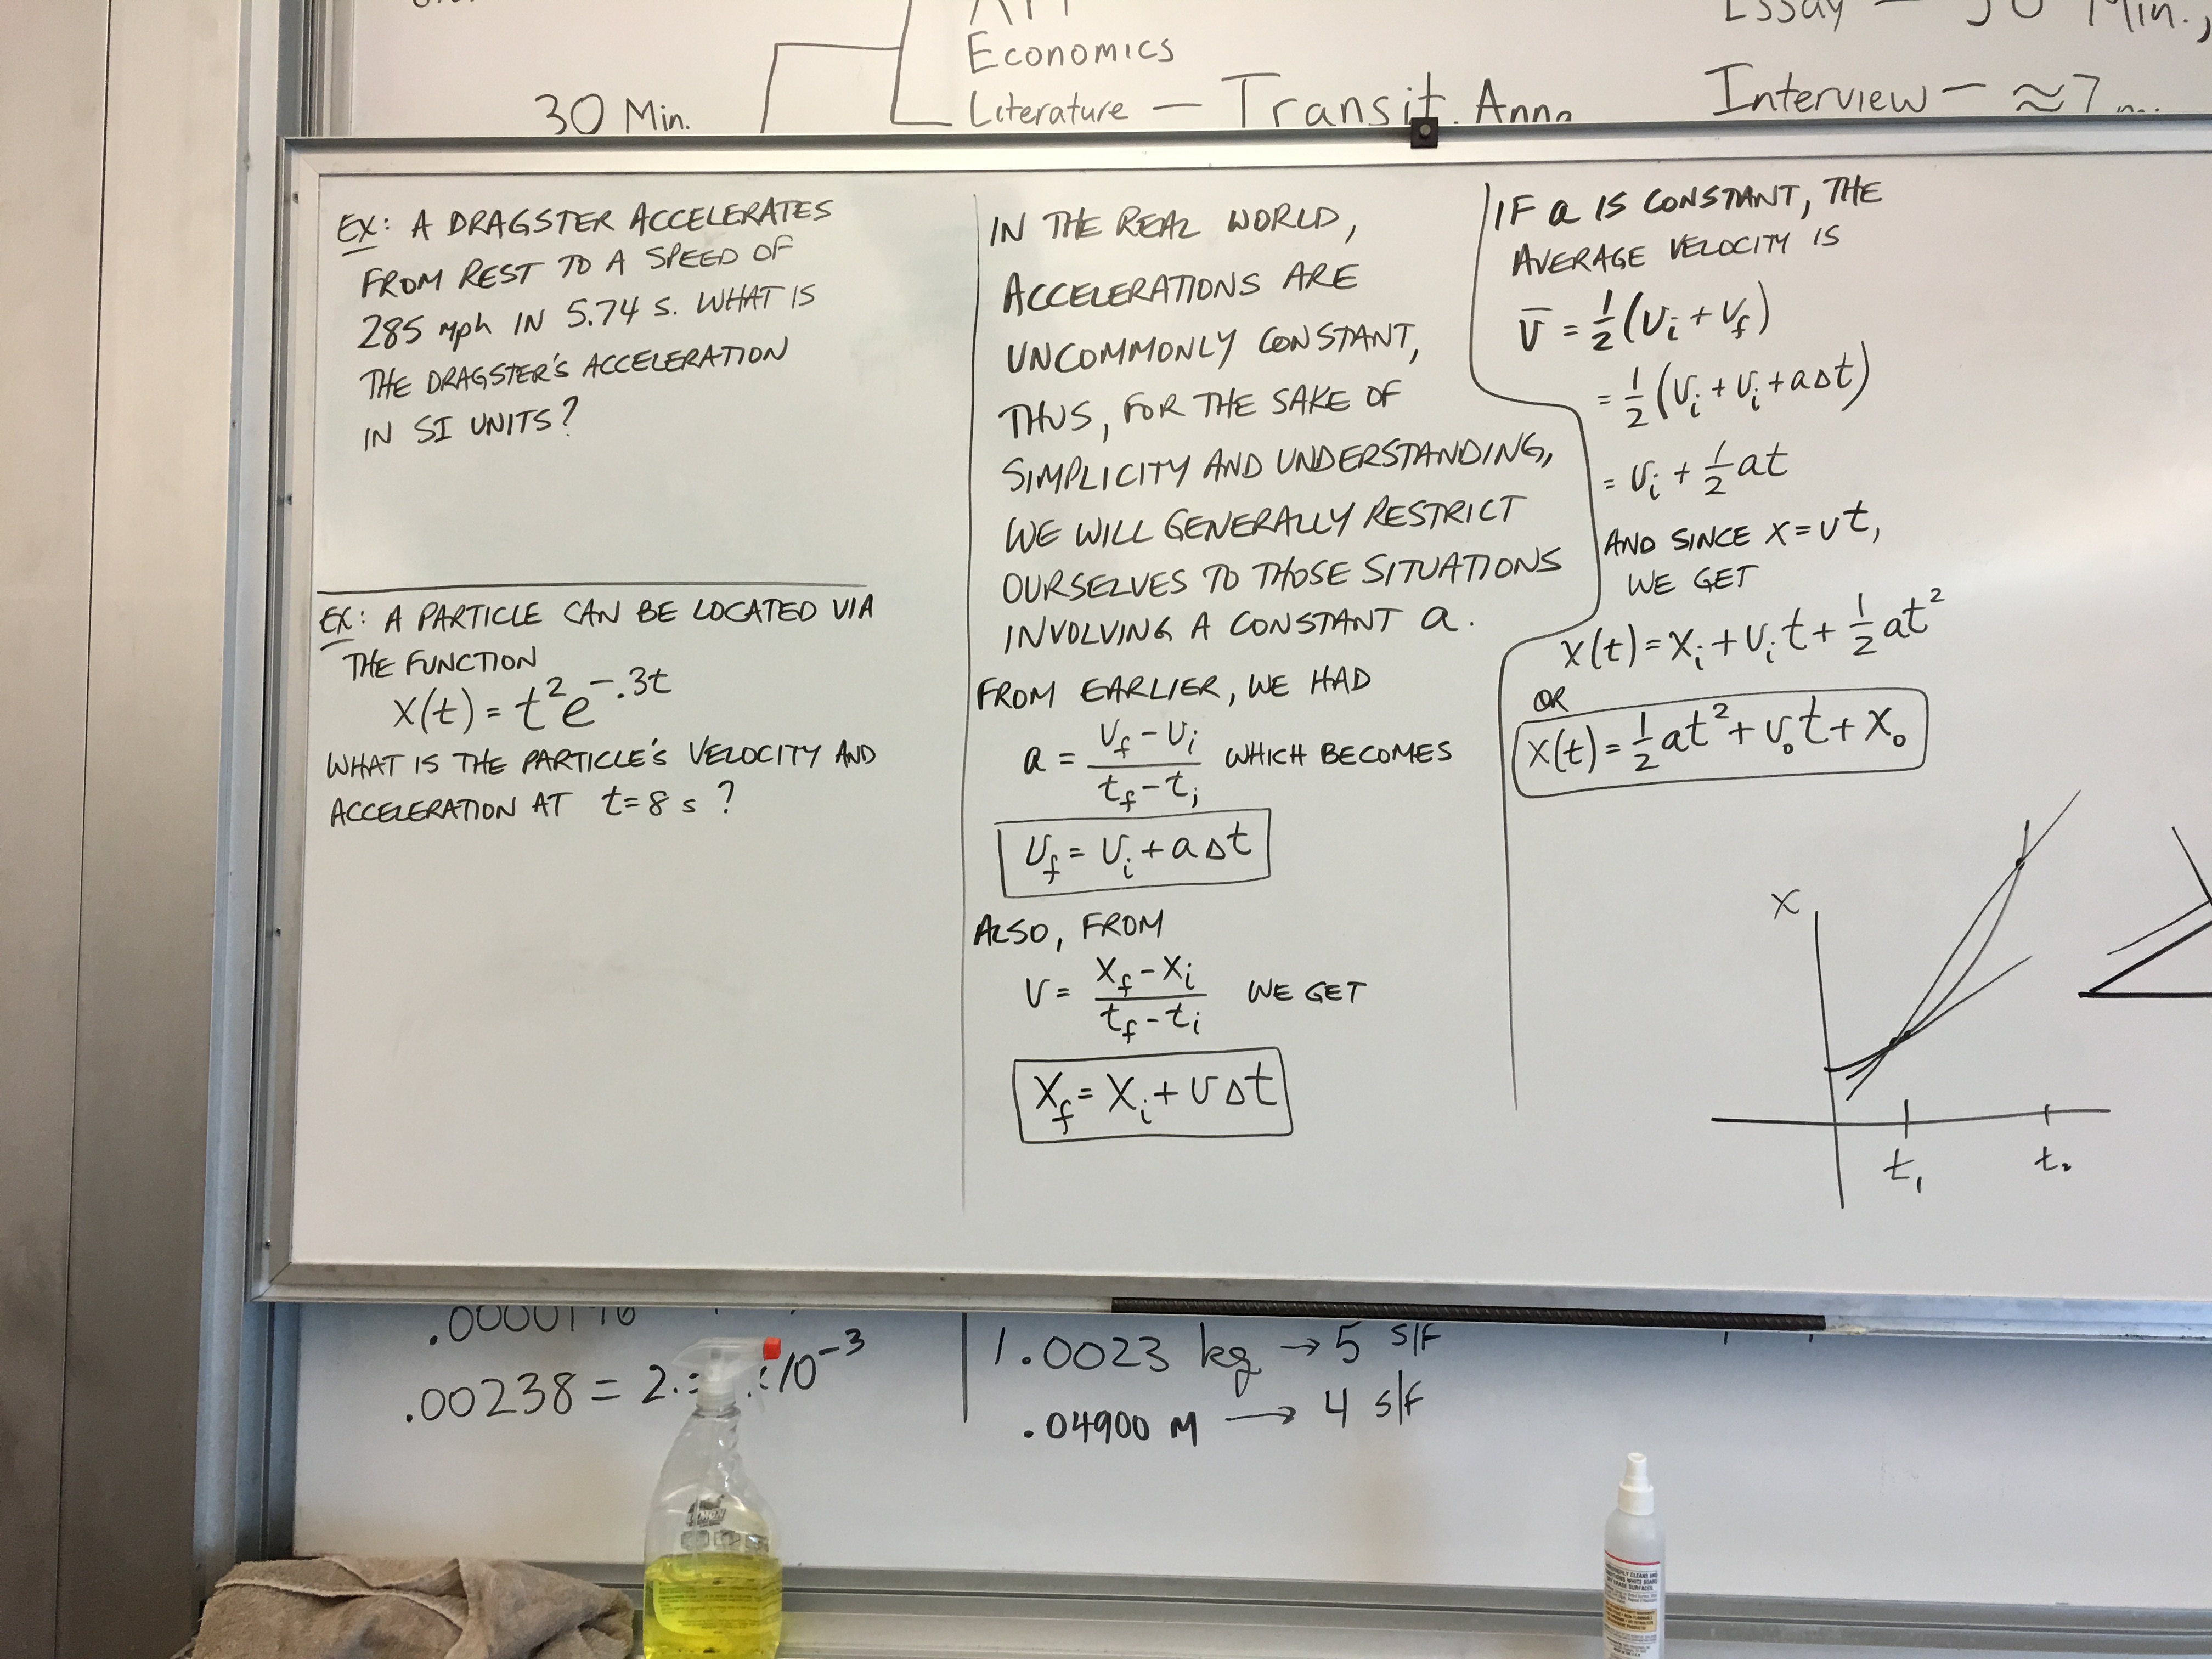 Economics
30 Min.
Literature — Transit.
Interview — ≈7
EX: A DRAGSTER ACCELERATES
FROM REST TO A SPEED OF
285 mph IN 5.74 s. WHAT IS
THE DRAGSTER'S ACCELERATION
IN SI UNITS?
EX: A PARTICLE CAN BE LOCATED VIA
THE FUNCTION
x(t) = t²e^-.3t
WHAT IS THE PARTICLE'S VELOCITY AND
ACCELERATION AT t=8 s ?
IN THE REAL WORLD,
ACCELERATIONS ARE
UNCOMMONLY CONSTANT,
THUS, FOR THE SAKE OF
SIMPLICITY AND UNDERSTANDING,
WE WILL GENERALLY RESTRICT
OURSELVES TO THOSE SITUATIONS
INVOLVING A CONSTANT a.
FROM EARLIER, WE HAD
a = (v_f - v_i)/(t_f - t_i) WHICH BECOMES
v_f = v_i + aΔt
ALSO, FROM
v = (x_f - x_i)/(t_f - t_i) WE GET
x_f = x_i + vΔt
IF a IS CONSTANT, THE
AVERAGE VELOCITY IS
v̄ = 1/2(v_i + v_f)
= 1/2(v_i + v_i + aΔt)
= v_i + 1/2at
AND SINCE x=vt,
WE GET
x(t) = x_i + v_i t + 1/2at²
OR
x(t) = 1/2at² + v₀t + x₀
x
t₁
t₂
.00238 = 2. 10⁻³
1.0023 kg → 5 s/f
.04900 m → 4 s/f